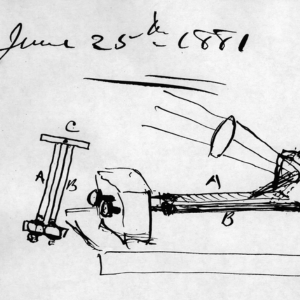 June 25th 1881
C
A
B
A
B